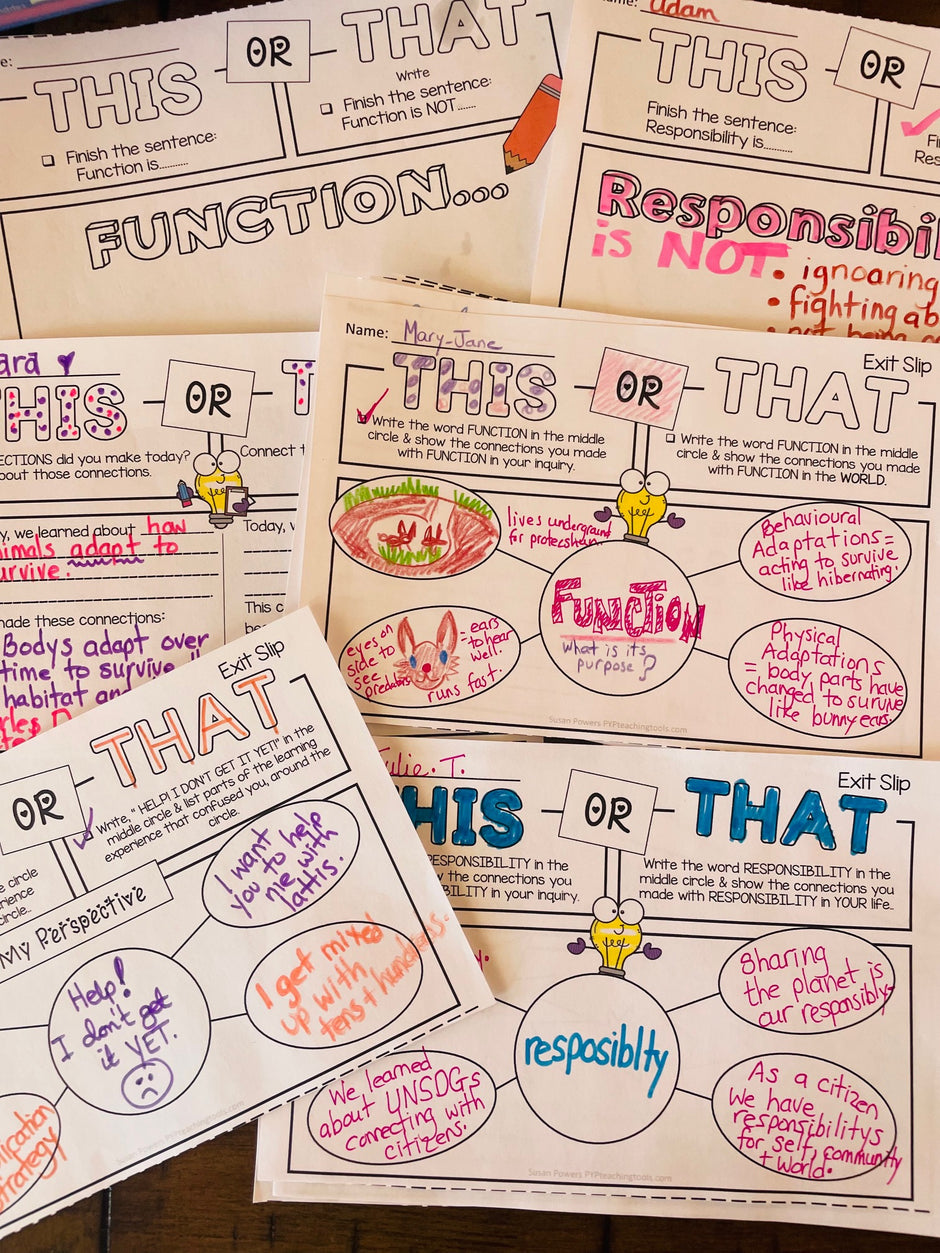 THIS
OR
THAT
Finish the sentence:
Function is..........
Write
Finish the sentence:
Function is NOT.......
FUNCTION...
Adam
THIS
OR
Finish the sentence:
Responsibility is..........
Responsibil
is NOT
• ignoaring
• fighting ab
ara
THIS
OR
T
ECTIONS did you make today?
bout those connections.
Connect
y, we learned about how
nimals adapt to
urvive.
Today,
nade these connections:
Bodys adapt over
time to survive
habitat an
This c
Name: Mary-Jane
Exit Slip
THIS
OR
THAT
Write the word FUNCTION in the middle
circle & show the connections you made
with FUNCTION in your inquiry.
Write the word FUNCTION in the middle
circle & show the connections you made
with FUNCTION in the WORLD.
lives underground
for protecshun
FUNCTION
what is its
purpose?
Behavioural
Adaptations =
acting to survive
like hibernating.
eyes on
side to
see
predators
= ears
to hear
well.
runs fast.
Physical
Adaptations
= body parts have
changed to survive
like bunny ears.
Susan Powers PYPteachingtools.com
Exit Slip
OR
THAT
Write, " HELP! I DON'T GET IT YET!" in the
middle circle & list parts of the learning
experience that confused you, around the
circle.
e circle
rience
circle.
My Perspective
Help!
I don't get
it YET.
I want
you to help
me with
lattis.
I get mixed
up with
tens + hundreds.
plication
strategy
Julie. T.
Exit Slip
THIS
OR
THAT
RESPONSIBILITY in the
w the connections you
IBILITY in your inquiry.
Write the word RESPONSIBILITY in the
middle circle & show the connections you
made with RESPONSIBILITY in YOUR life..
resposiblty
Sharing
the planet is
our responsibly
We learned
about UNSDGs
connecting with
citizens.
As a citizen
We have
responsibilitys
for self, community
+ world.
Susan Powers PYPteachingtools.com